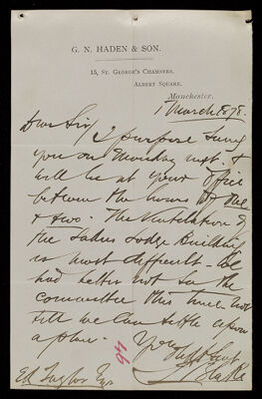 G. N. HADEN & SON.
15, ST. GEORGE'S CHAMBERS,
ALBERT SQUARE,
Manchester,
March 8 78.
Dear Sir,
I purpose
you on Monday next &
will be at your Office
between the hours of one
& two. The Ventilation of
the Lodge Building
is most difficult - We
had better not see the
committee this time not
till we can settle upon
a plan.
Yours
Blake